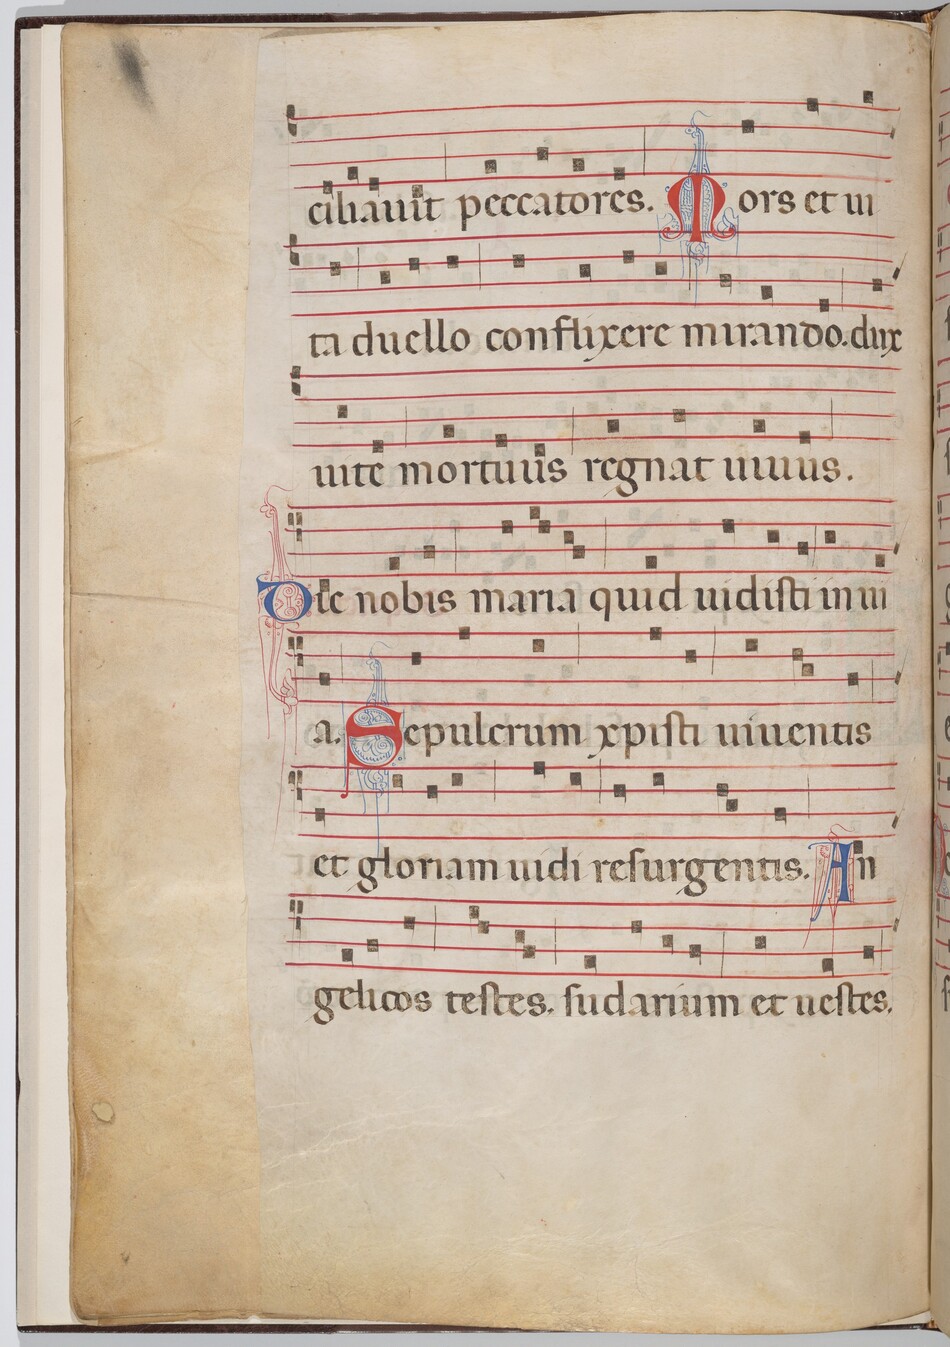 ciliauit peccatores. Mors et ui
ta duello conflixere mirando. dux
uite mortuus regnat uiuus.
Dic nobis maria quid uidisti in ui
a. Sepulcrum xpisti uiuentis
et gloriam uidi resurgentis. An
gelicos testes. sudarium et uestes.